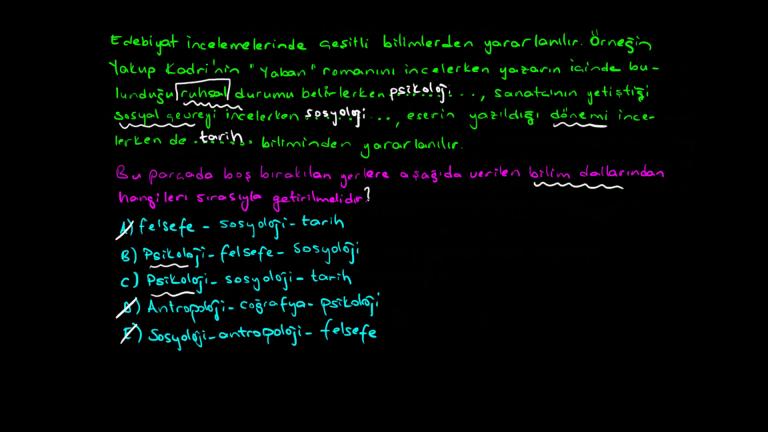 Edebiyat incelemelerinde çeşitli bilimlerden yararlanılır. Örneğin
Yakup Kadri'nin "Yaban" romanını incelerken yazarın içinde bu-
lunduğu ruhsal durumu belirlerken psikoloji..., sanatçının yetiştiği
sosyal çevreyi incelerken sosyoloji..., eserin yazıldığı dönemi ince-
lerken de tarih... biliminden yararlanılır.
Bu parçada boş bırakılan yerlere aşağıda verilen bilim dallarından
hangileri sırasıyla getirilmelidir?
A) felsefe - sosyoloji - tarih
B) Psikoloji - felsefe - sosyoloji
C) Psikoloji - sosyoloji - tarih
D) Antropoloji - coğrafya - psikoloji
E) Sosyoloji - antropoloji - felsefe